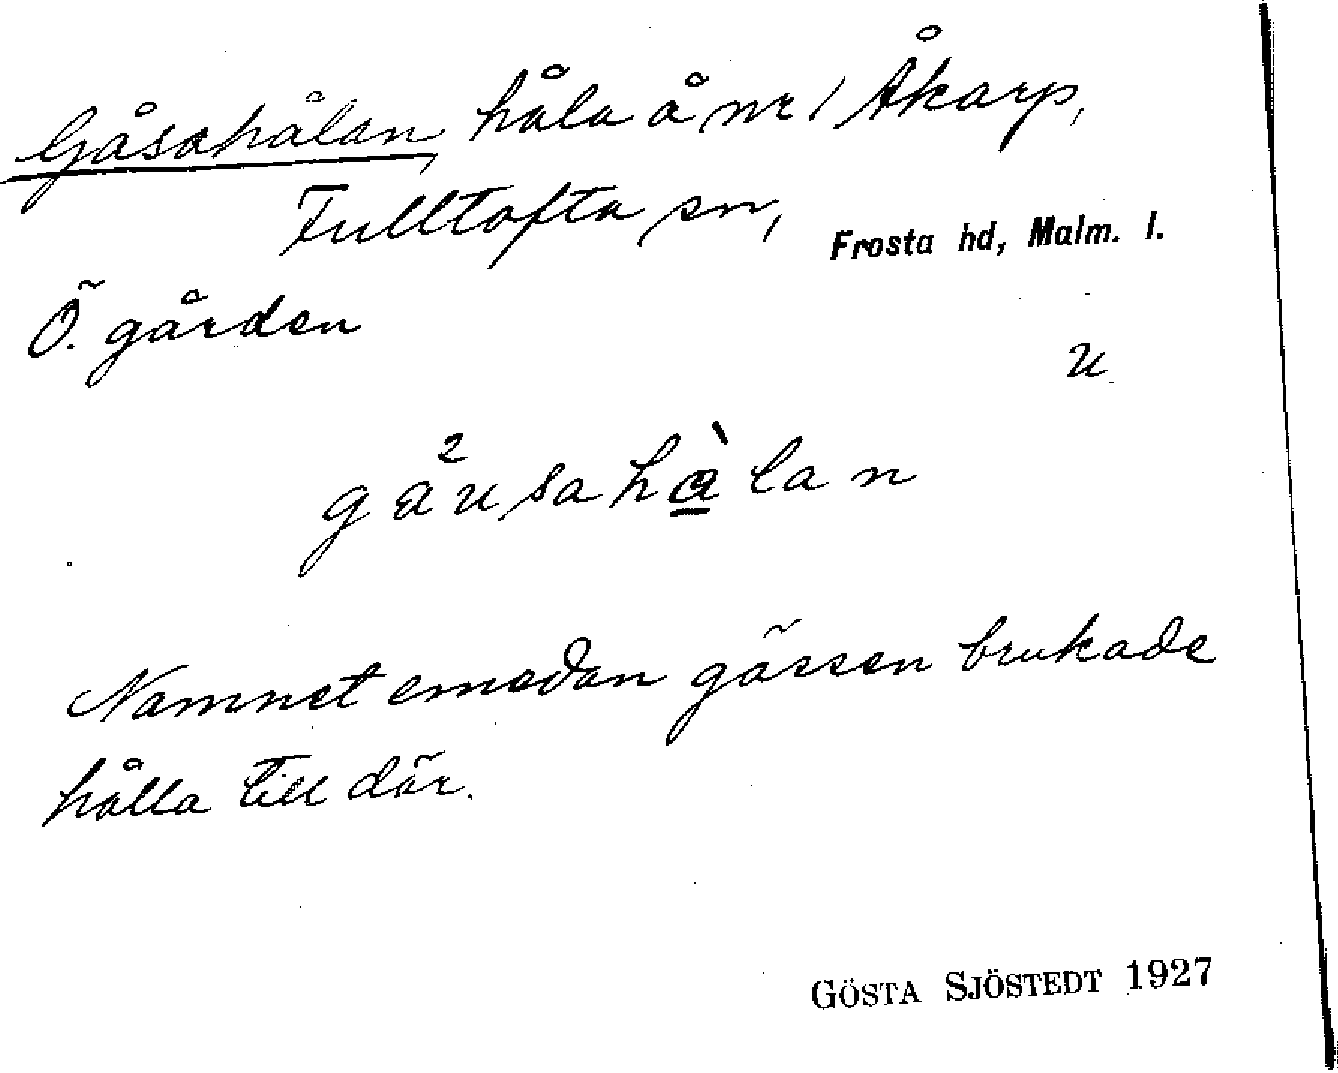 Gåsahålan, håla å nr 1 Åkarp,
Fulltofta sn, Frosta hd, Malm. l.
Ö. gården
u
gåusahàlan
Namnet emedan gässen brukade
hålla till där.
GÖSTA SJÖSTEDT 1927